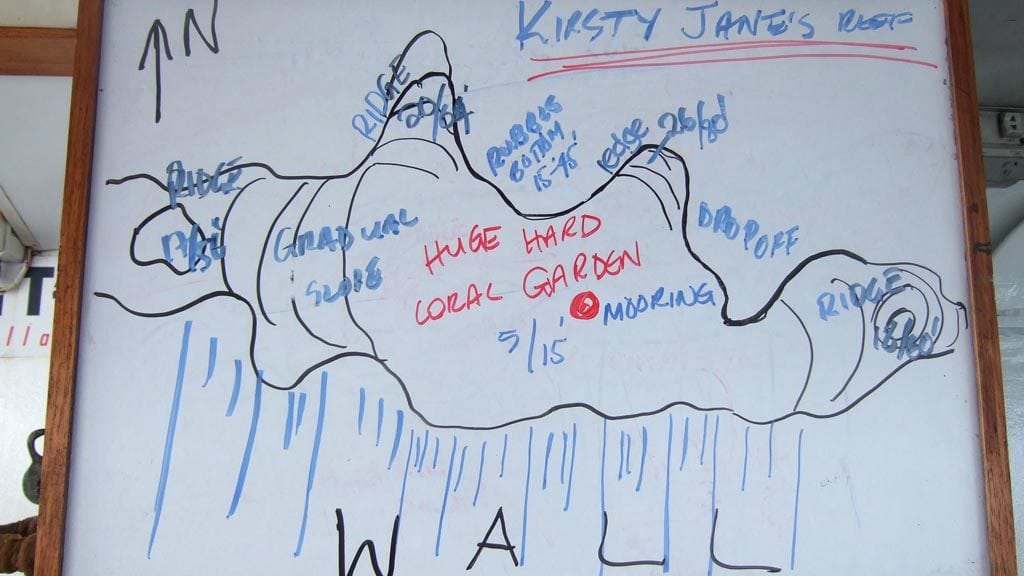 N
KIRSTY JANE'S REEF
RIDGE
20/64'
RUBBLE
BOTTOM
15-45'
ledge 26/80'
RIDGE
GRADUAL
SLOPE
HUGE HARD
CORAL GARDEN
MOORING
5/15'
DROP OFF
RIDGE
18/60'
WALL